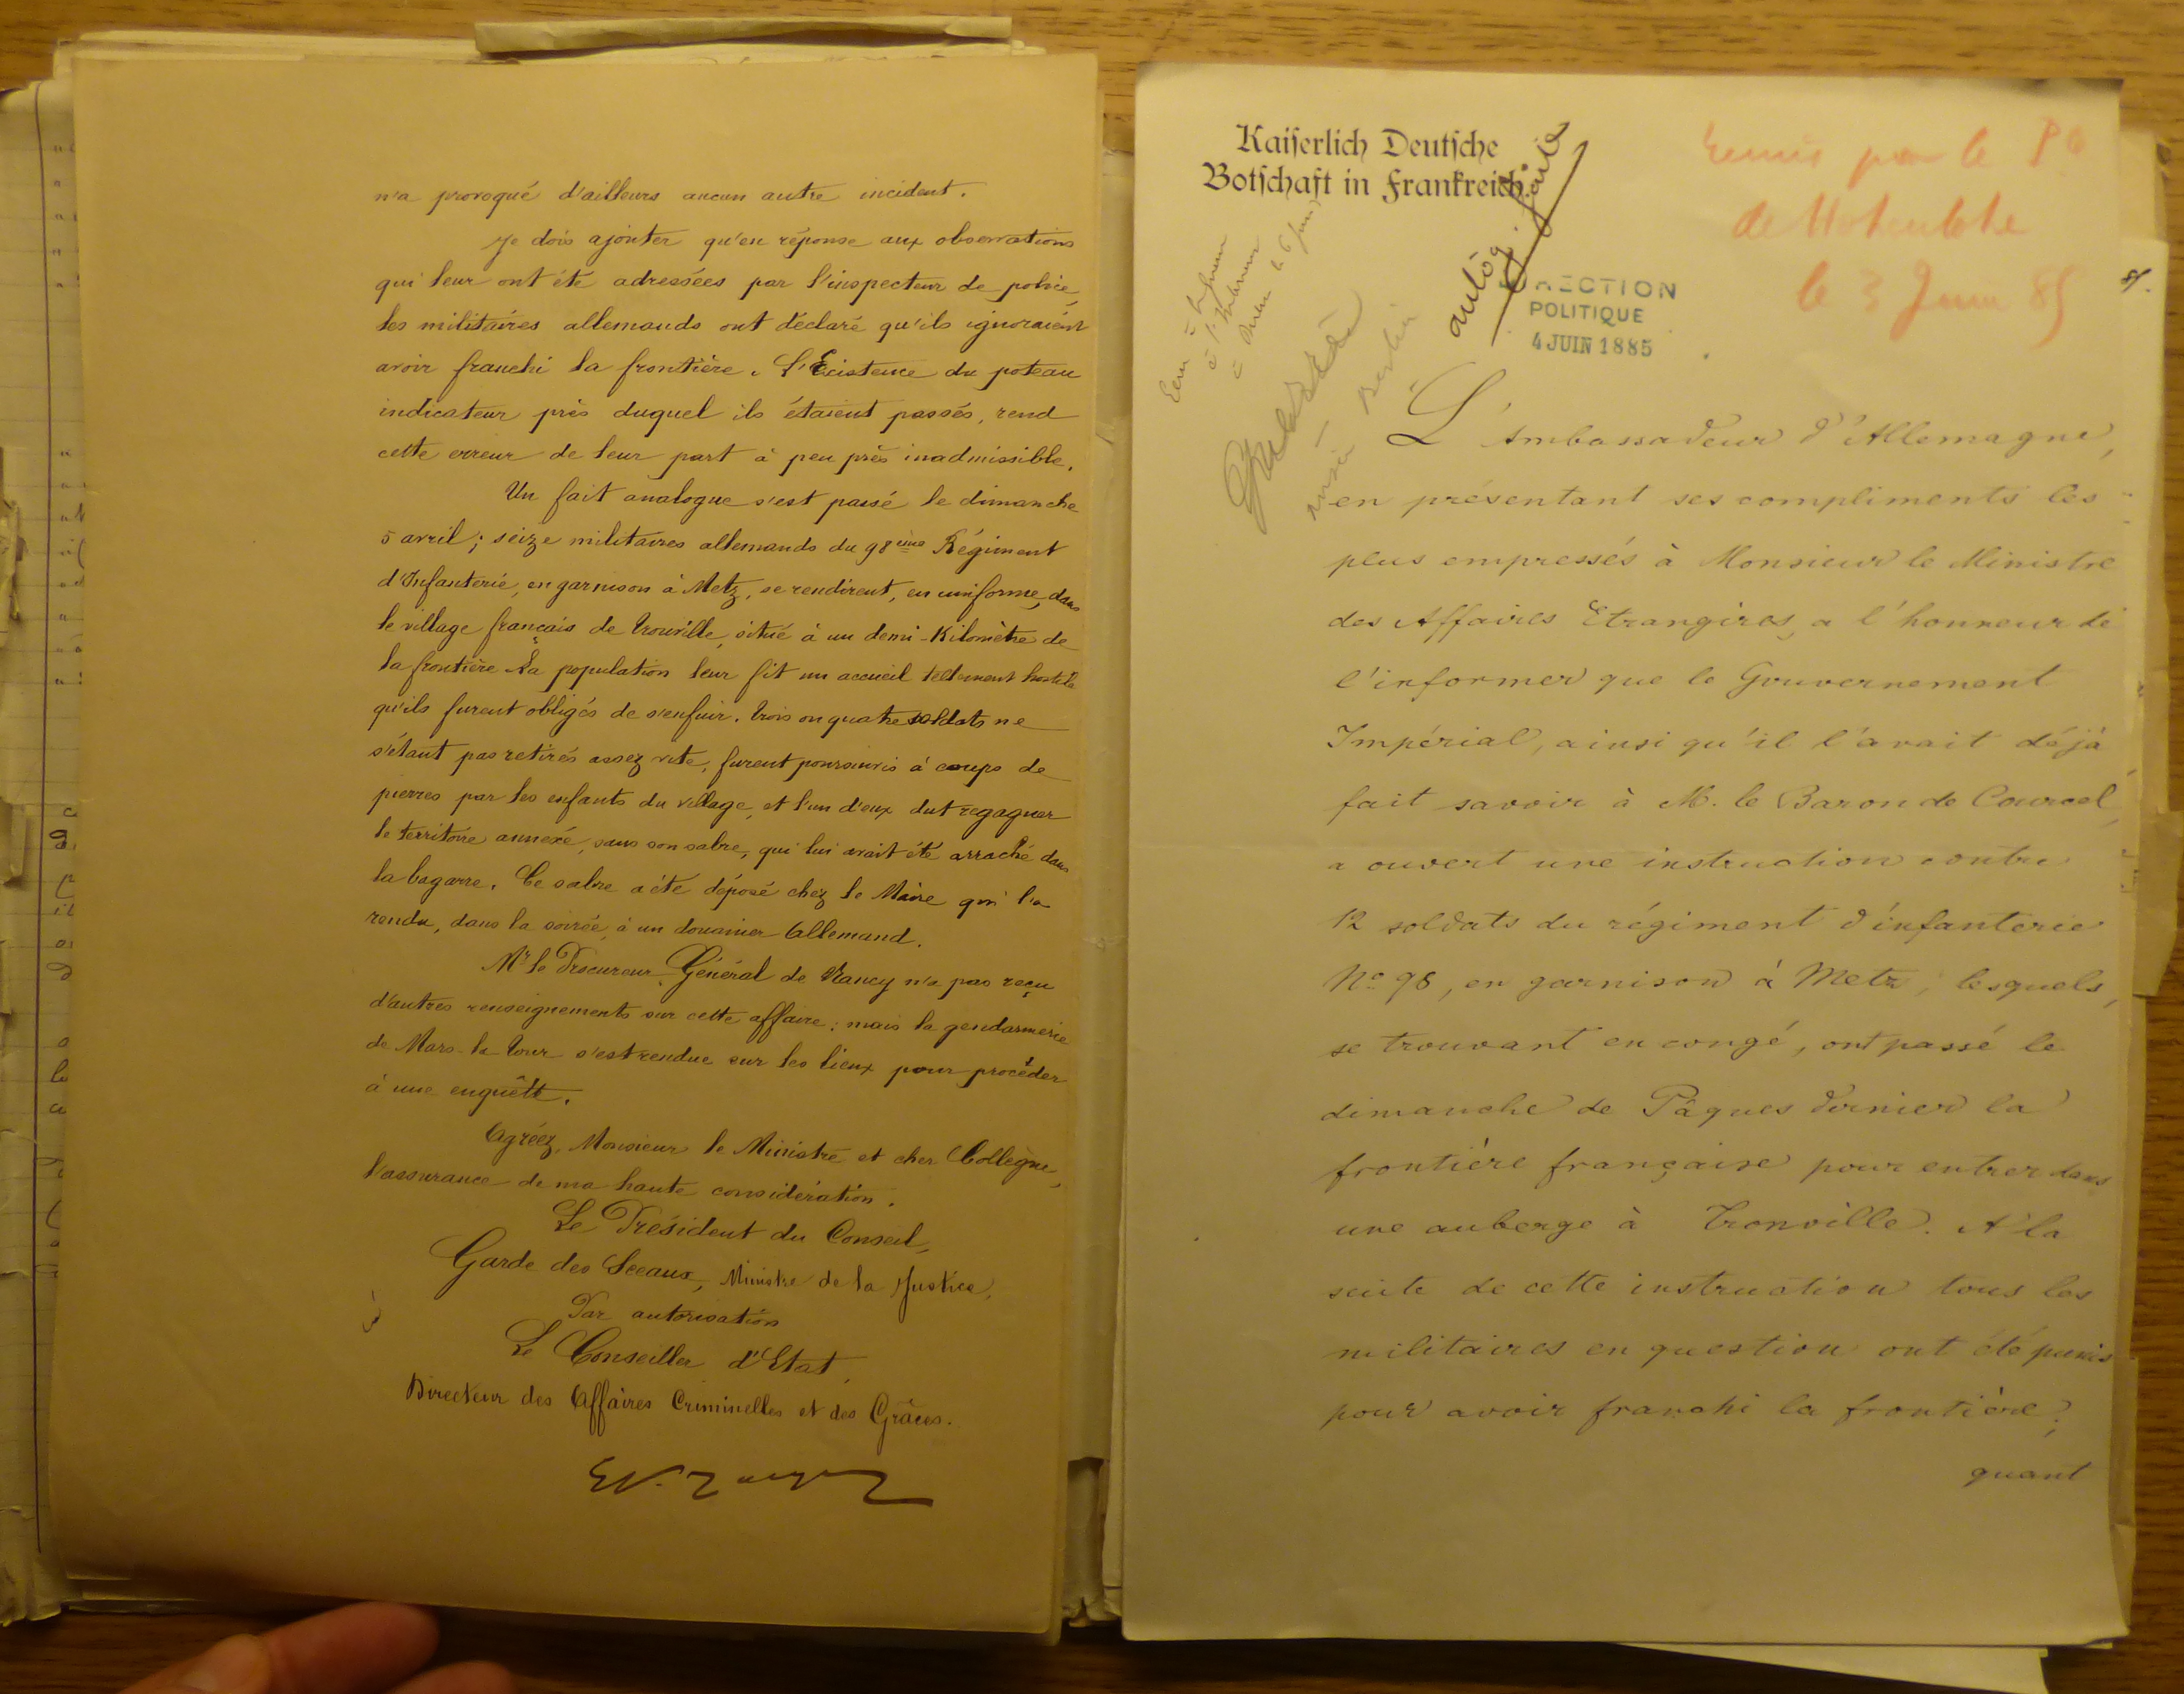 n'a provoqué d'ailleurs aucun autre incident.
Je dois ajouter qu'en réponse aux observations
qui leur ont été adressées par l'inspecteur de police,
les militaires allemands ont déclaré qu'ils ignoraient
avoir franchi la frontière. L'Existence du poteau
indicateur près duquel ils étaient passés, rend
cette erreur de leur part à peu près inadmissible.
Un fait analogue s'est passé le dimanche
5 avril; seize militaires allemands du 98ème Régiment
d'Infanterie, en garnison à Metz, se rendirent, en uniforme, dans
le village français de Trouville, situé à un demi-Kilomètre de
la frontière. La population leur fit un accueil tellement hostile
qu'ils furent obligés de s'enfuir. Trois ou quatre soldats ne
s'étant pas retirés assez vite, furent poursuivis à coups de
pierres par les enfants du village, et l'un d'eux dut regagner
le territoire annexé, sans son sabre, qui lui avait été arraché dans
la bagarre. Ce sabre a été déposé chez le Maire qui l'a
rendu, dans la soirée, à un douanier Allemand.
Mr le Procureur Général de Nancy n'a pas reçu
d'autres renseignements sur cette affaire; mais la gendarmerie
de Mars-la-Tour s'est rendue sur les lieux pour procéder
à une enquête.
Agréez, Monsieur le Ministre et cher Collègue,
l'assurance de ma haute considération.
Le Président du Conseil,
Garde des Sceaux, Ministre de la Justice,
Par autorisation
Le Conseiller d'Etat,
Directeur des Affaires Criminelles et des Grâces.
Kaiserlich Deutsche
Botschaft in Frankreich.
autog. faite
Remis par le Pce
de Hohenlohe
le 3 Juin 85
DIRECTION
POLITIQUE
4 JUIN 1885
L'Ambassadeur d'Allemagne,
en présentant ses compliments les
plus empressés à Monsieur le Ministre
des Affaires Etrangères, a l'honneur de
l'informer que le Gouvernement
Impérial, ainsi qu'il l'avait déjà
fait savoir à M. le Baron de Courcel,
a ouvert une instruction contre
12 soldats du régiment d'infanterie
No 98, en garnison à Metz, lesquels,
se trouvant en congé, ont passé le
dimanche de Pâques dernier la
frontière française pour entrer dans
une auberge à Tronville. A la
suite de cette instruction tous les
militaires en question ont été punis
pour avoir franchi la frontière;
quant